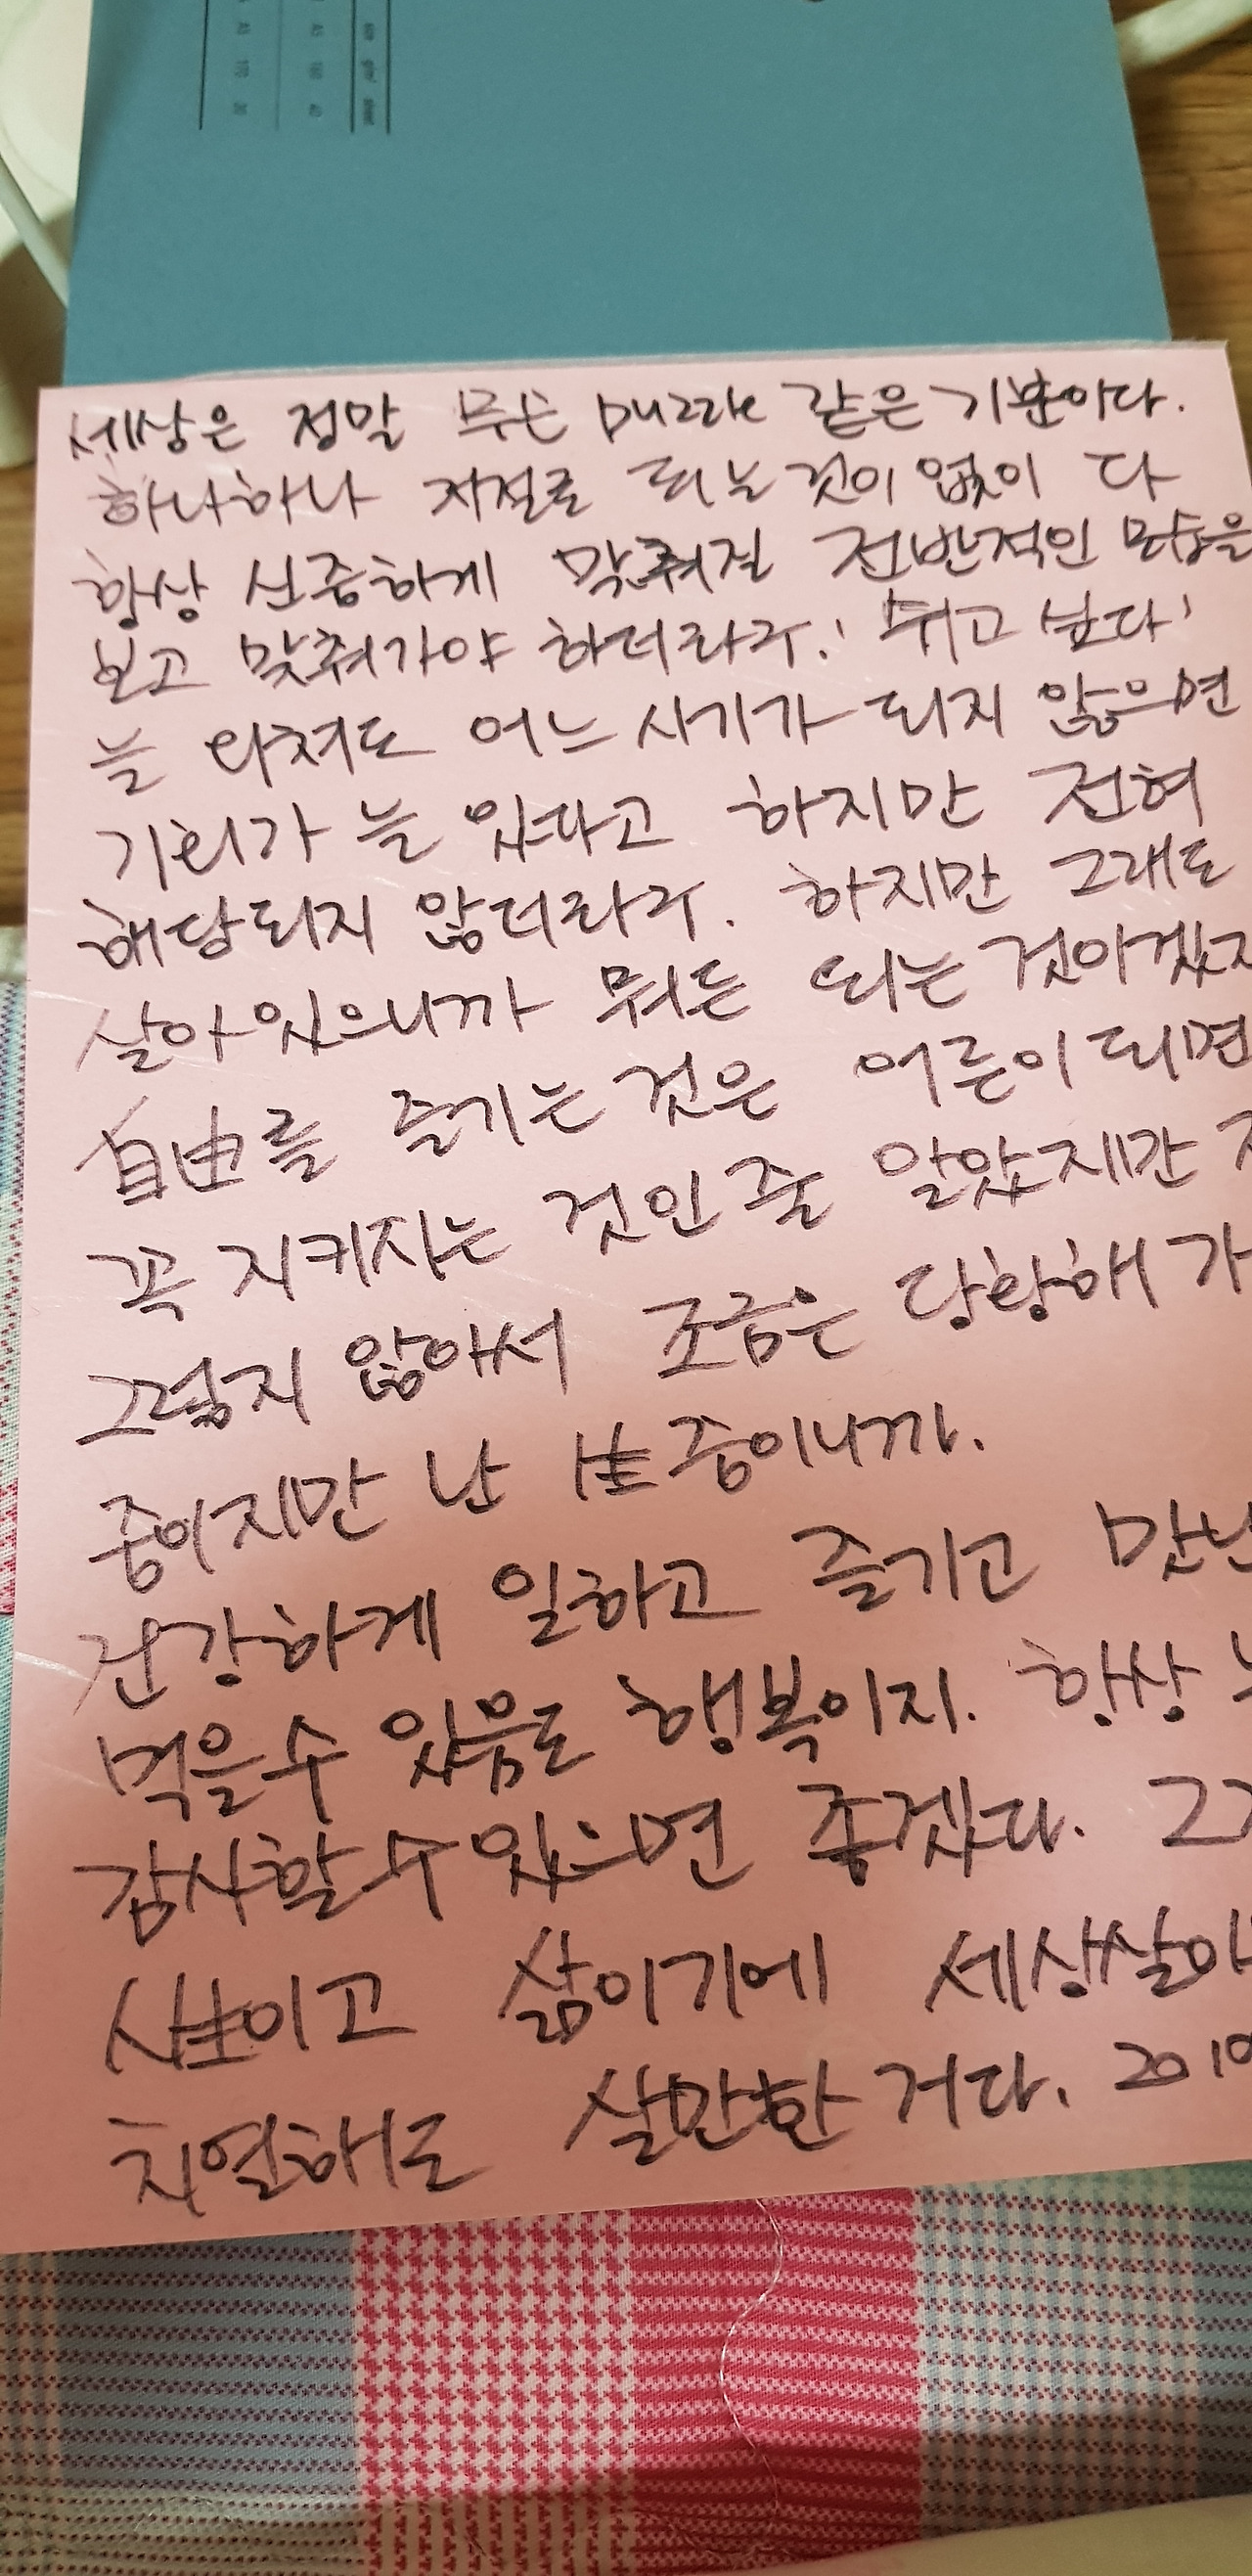 세상은 정말 무슨 puzzle 같은 기분이다.
하나하나 저절로 되는 것이 없이 다
항상 신중하게 맞춰질 전반적인 모습을
보고 맞춰가야 하더라구. '쉬고 싶다'
늘 외쳐도 어느 시기가 되지 않으면
기회가 늘 있다고 하지만 전혀
해당되지 않더라구. 하지만 그래도
살아있으니까 뭐든 되는 것이겠지
自由를 즐기는 것은 어른이 되면
꼭 지키자는 것인 줄 알았지만
그렇지 않아서 조금은 당황해 가
중이지만 난 生중이니까.
건강하게 일하고 즐기고 맛난
먹을수 있음도 행복이지. 항상
감사할수 있으면 좋겠다.
人生이고 삶이기에 세상살이
치열해도 살만한 거다.